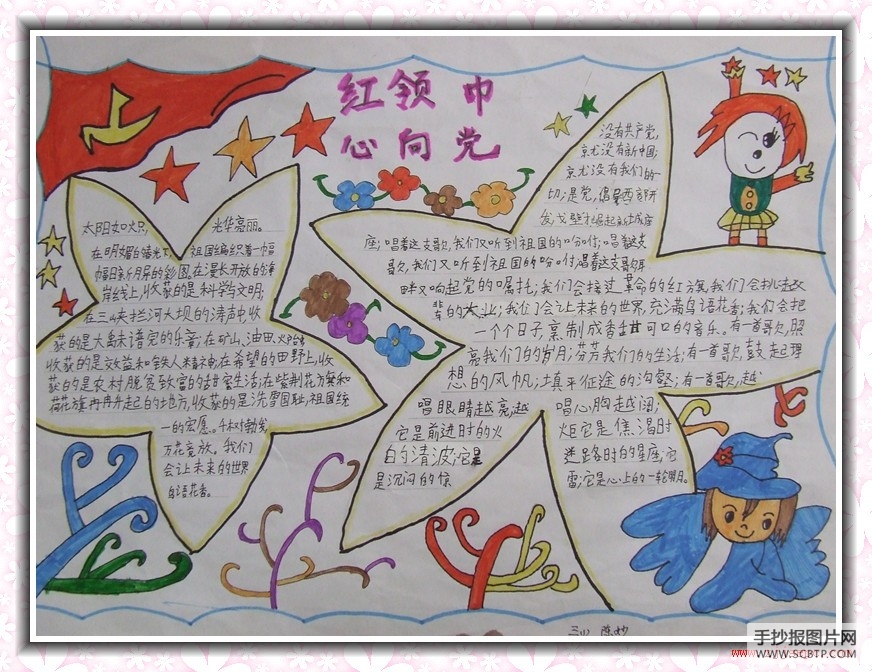 红领巾
心向党
太阳如火只,
光华亮丽。
在明媚的
祖国编织着一幅
幅日新月异的彩图,在漫长开放的海
岸线上,收获的是科学与文明;
在三峡拦河大坝的涛声里,收
获的是大禹未谱完的乐章;在矿山、油田
收获的是效益和铁人精神;在希望的田野上,收
获的是农村脱贫致富的甜蜜生活;在紫荆花旗和
荷花旗冉冉升起的地方,收获的是洗雪国耻,祖国统
一的宏愿。千树勃发
万花竞放。我们
会让未来的世界
鸟语花香。
没有共产党,
就没有新中国;
就没有我们的一
切;是党,
座;唱着这支歌,我们又听到祖国的吩咐;唱着这支
歌,我们又听到祖国的吩咐,唱着这支歌耳
畔又响起党的嘱托;我们会接过革命的红旗,我们会扎根
辈的大业;我们会让未来的世界,充满鸟语花香;我们会把
一个个日子,烹制成香甜可口的音乐。有一首歌,照
亮我们的岁月,芬芳我们的生活;有一首歌,鼓起理
想的风帆,填平征途的沟壑;有一首歌,越
唱眼睛越亮;越
唱心胸越阔;
它是前进时的火
炬它是焦渴时
的清波;它是
迷路时的星座;它
是沉闷的
雷;它是心上的一轮明月。
三(1) 陈妙
手抄报图片网
WWW.SCBTP.COM